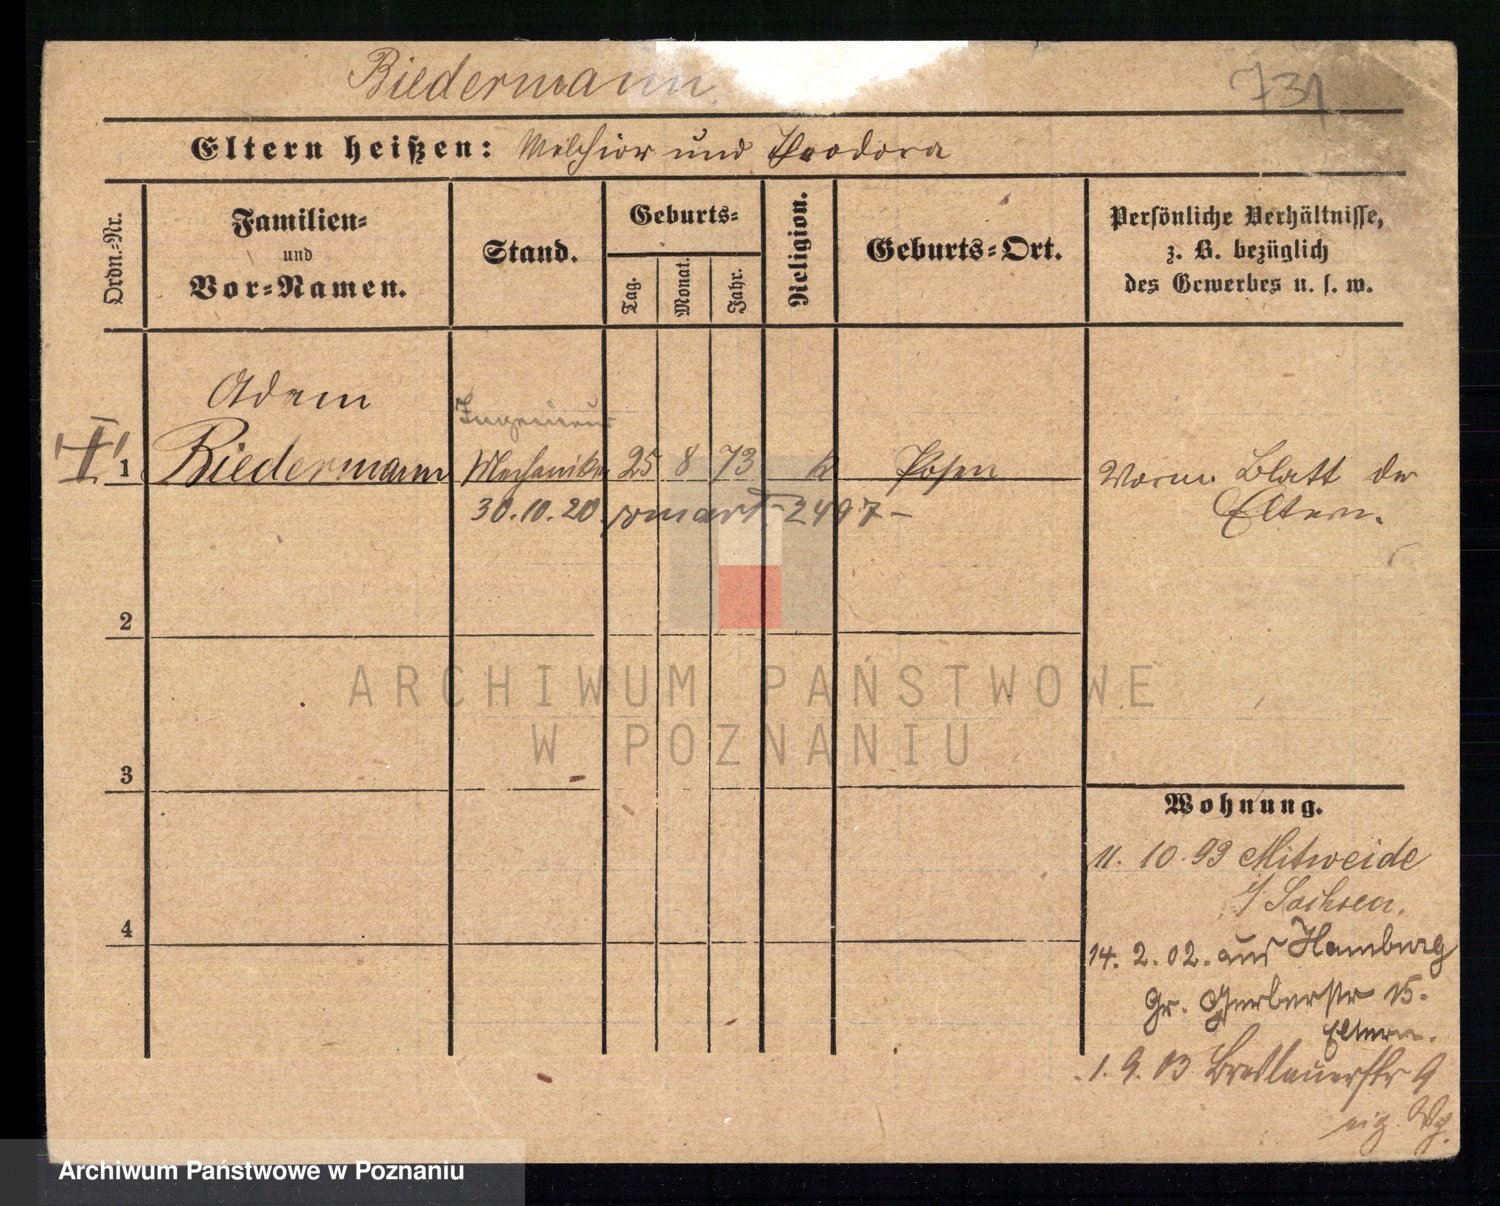 Biedermann
731
Eltern heißen: Melchior und Theodora
Ordn.-Nr.
Familien-
und
Vor-Namen.
Stand.
Geburts-
Tag.
Monat.
Jahr.
Religion.
Geburts-Ort.
Persönliche Verhältnisse,
z. B. bezüglich
des Gewerbes u. s. w.
Adam
Ingenieur
1 Biedermann Mechaniker 25 8 73 k Posen Vorm. Blatt der
Eltern.
30.10.20 2497 -
2
3
4
ARCHIWUM PAŃSTWOWE
W POZNANIU
Wohnung.
11. 10. 99 Mitweide
i/ Sachsen.
14. 2. 02. aus Hamburg
Gr. Gerberstr 15.
Eltern.
1. 9. 03 Breslauerstr 9
eig. Wg.
Archiwum Państwowe w Poznaniu